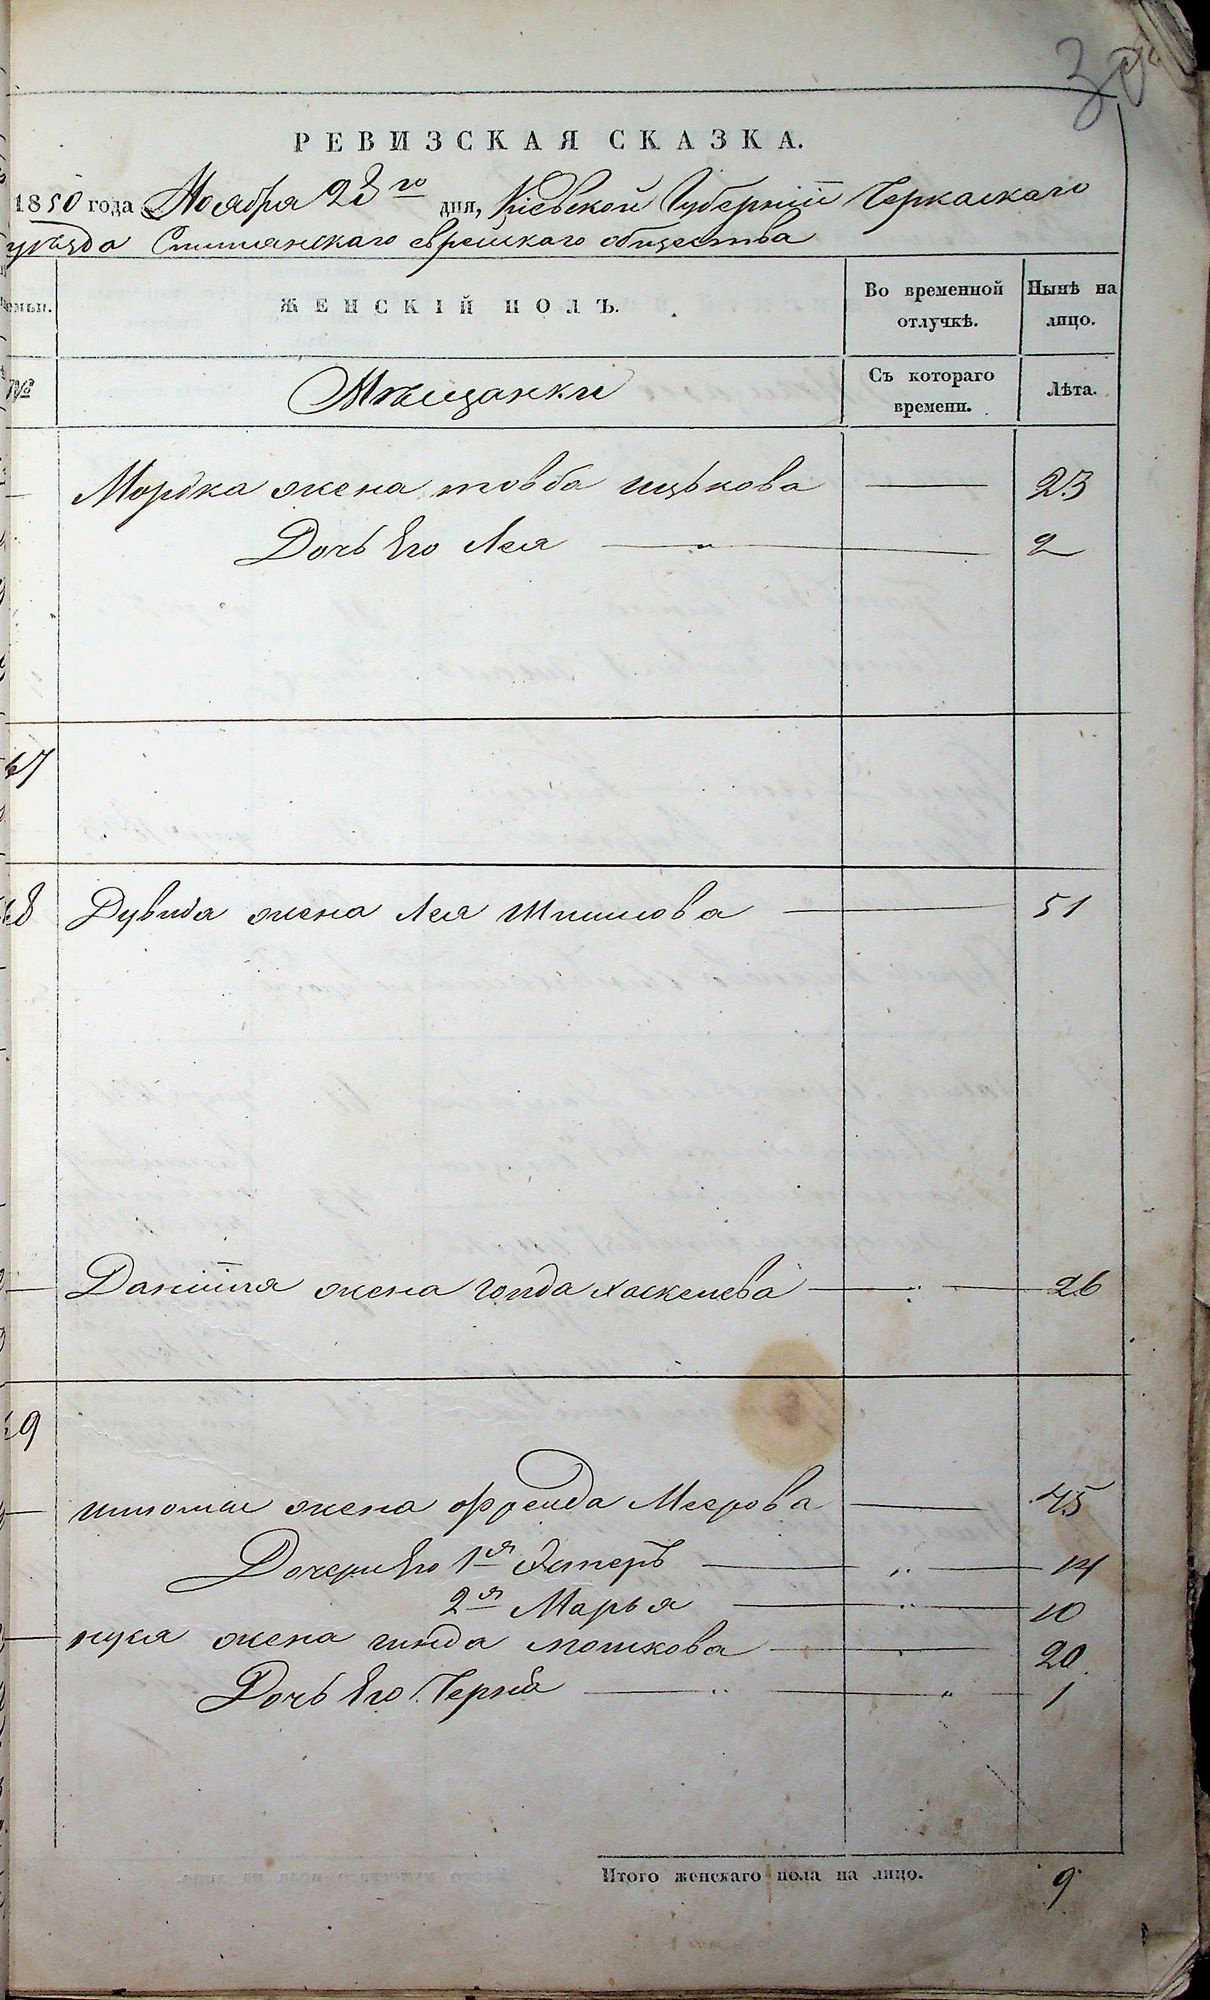 30
РЕВИЗСКАЯ СКАЗКА.
1850 года Ноября 28го дня, Кіевской Губерніи Черкаскаго
уѣзда Смилянскаго еврейскаго общества
ЖЕНСКІЙ ПОЛЪ.
Во временной отлучкѣ.
Нынѣ на лицо.
№
Мѣщанки
Съ котораго времени.
Лѣта.
Мордка жена товба ицькова 23
Дочь Его Лея 2
67
68 Дувида жена Лея Шмилова 51
Даніиля жена голда хаскелева 26
69
жена фрейда Меерова 45
Дочери Его 1я Эстеръ 14
2я Марья 10
жена гинда мошкова 20
Дочь Его Черня 1
Итого женскаго пола на лицо. 9